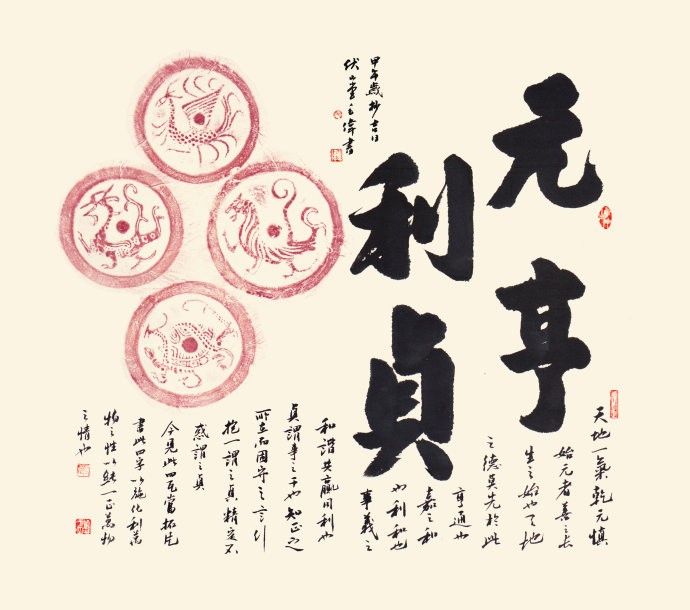 元亨
利貞
甲午歲杪吉日
伏山堂主偉書
天地一氣乾元慎
始元者善之長
生之始也天地
之德莫先於此
亨通也
嘉之和
也利和也
事義之
和諧共贏同利也
貞謂事之干也知正之
所在而固守之言行
抱一謂之貞精定不
惑謂之貞
今見此四瓦當拓片
書此四字以施化利萬
物之性以能一正萬物
之情也